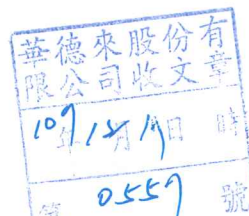 華德來股份有
限公司收文章
109年12月17日 時
第 05597 號